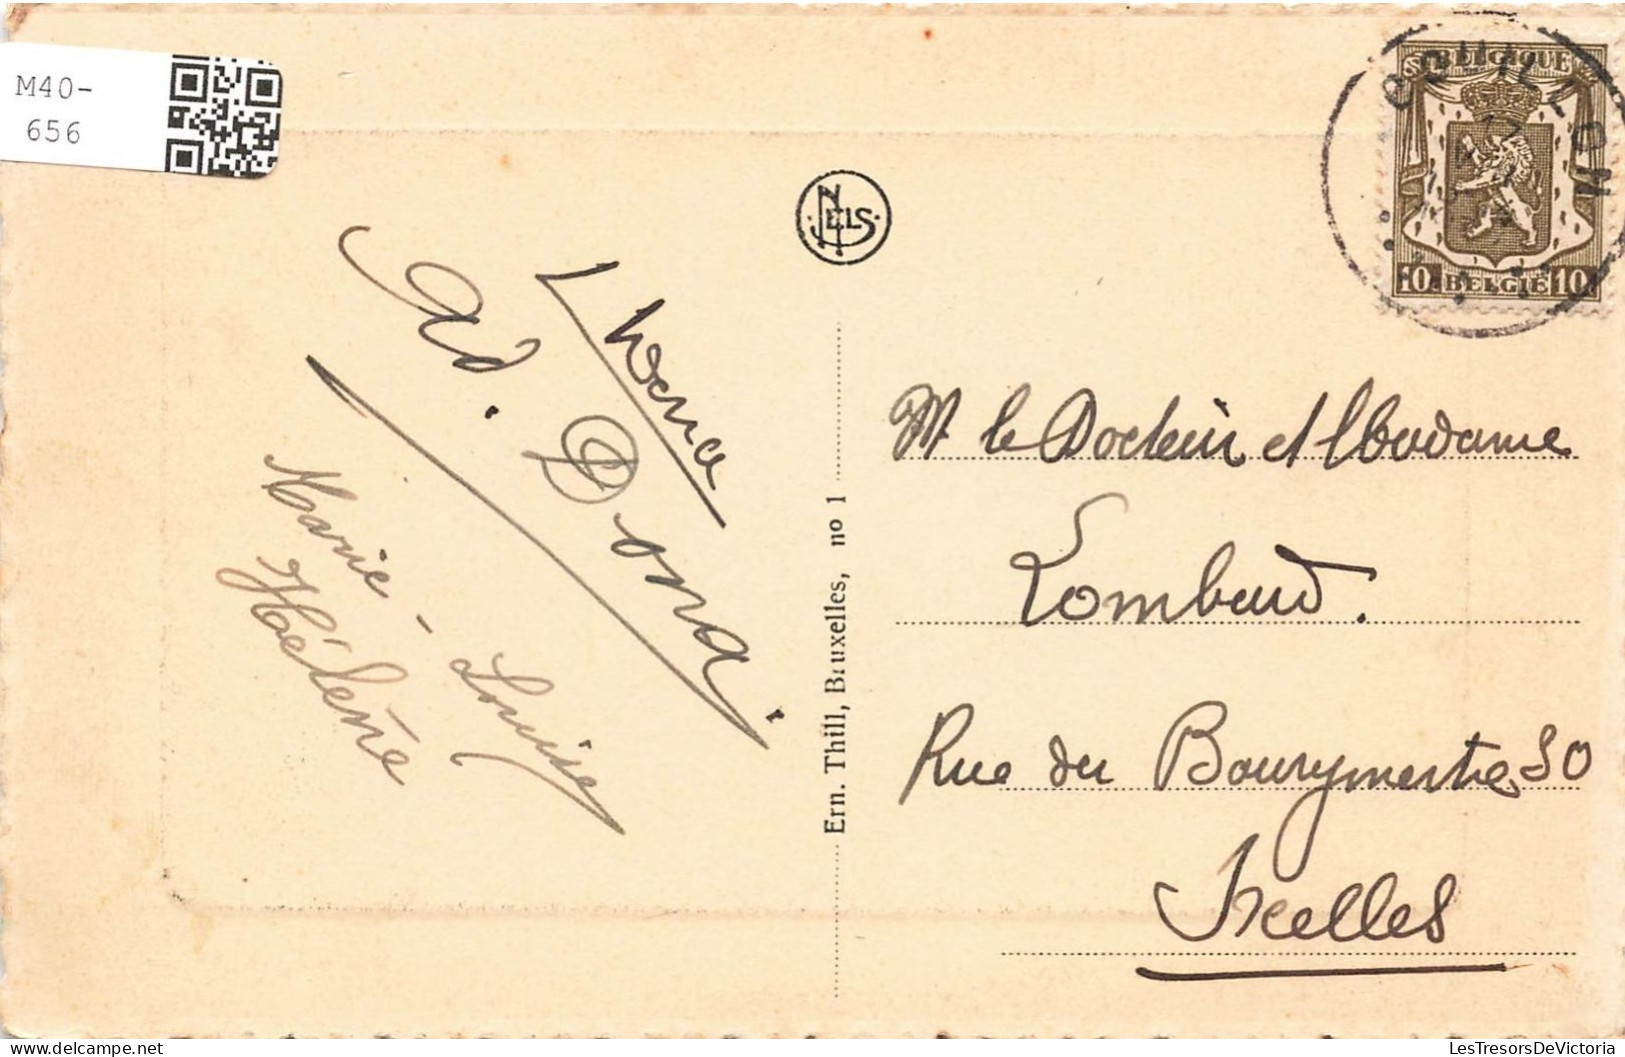 M40-
656
NELS
BELGIQUE
10 BELGIË 10
Ad. Dona
Marie-Louise
Hélène
Ern. Thill, Bruxelles, no 1
M le Docteur et Madame
Lombard.
Rue du Bourgmestre 50
Ixelles
LesTresorsDeVictoria